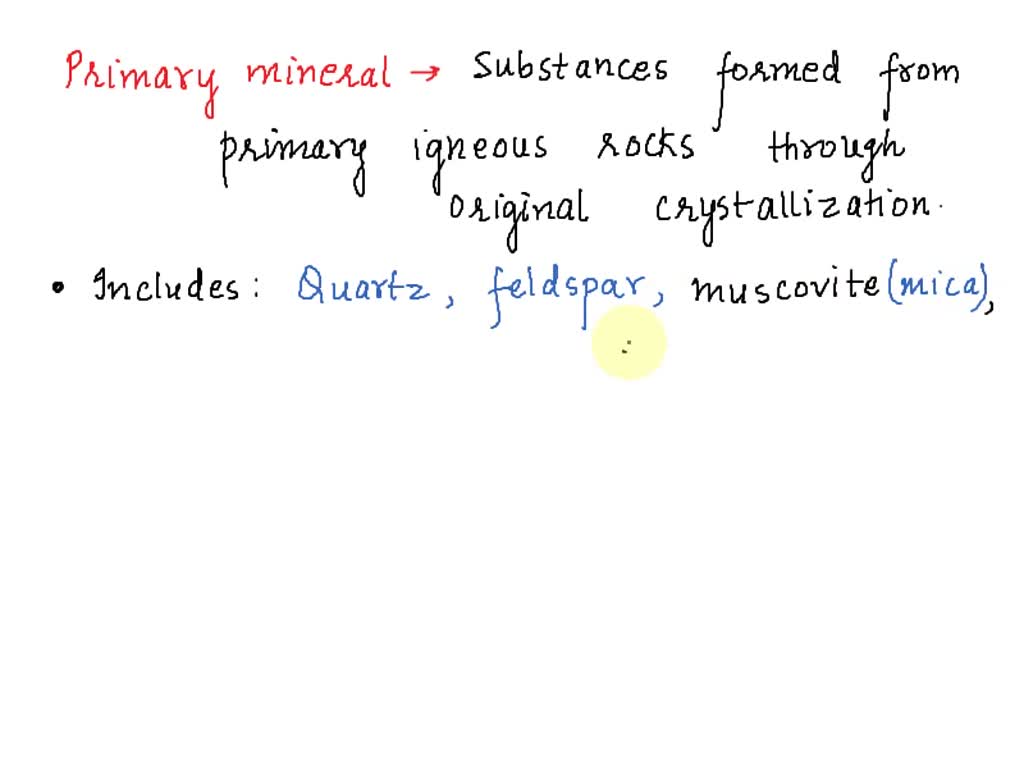 Primary mineral → Substances formed from
primary igneous rocks through
original crystallization.
• Includes: Quartz, feldspar, muscovite (mica),